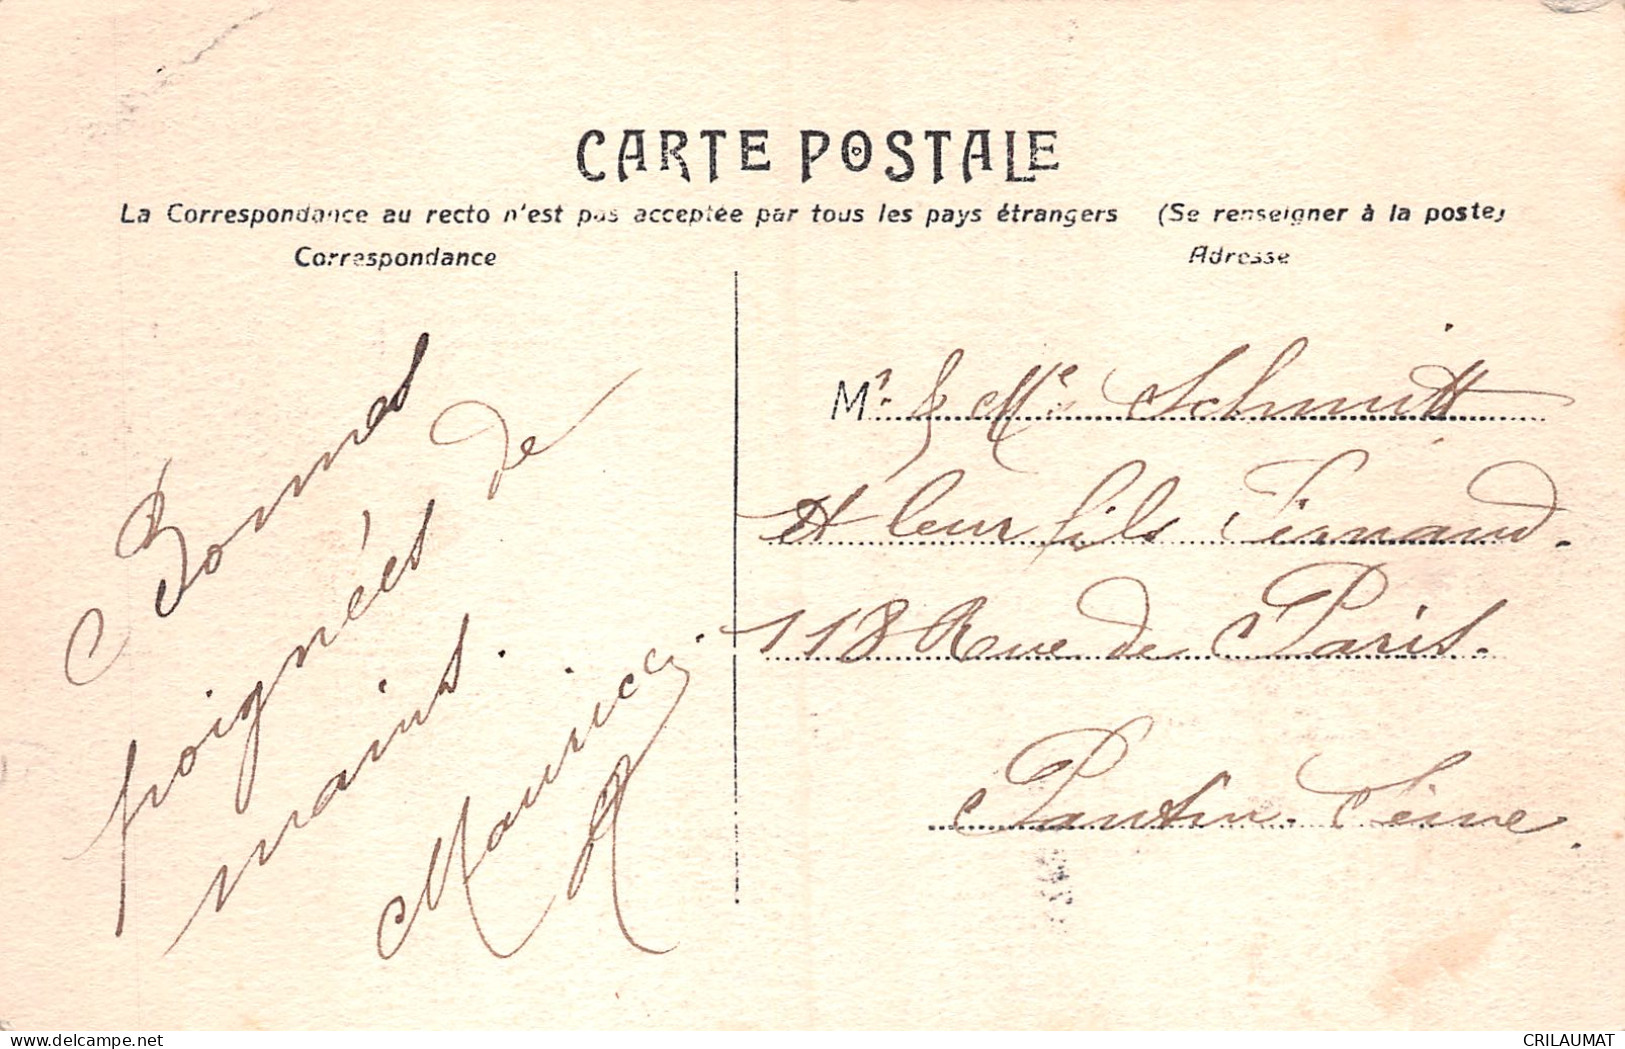 CARTE POSTALE
La Correspondance au recto n'est pas acceptée par tous les pays étrangers (Se renseigner à la poste)
Correspondance
Adresse
Bonnes
poignées de
mains.
Maurice
Mr. & Me Schmitt
et leur fils Fernand.
118 Rue de Paris.
Pantin. Seine.
www.delcampe.net
CRILAUMAT